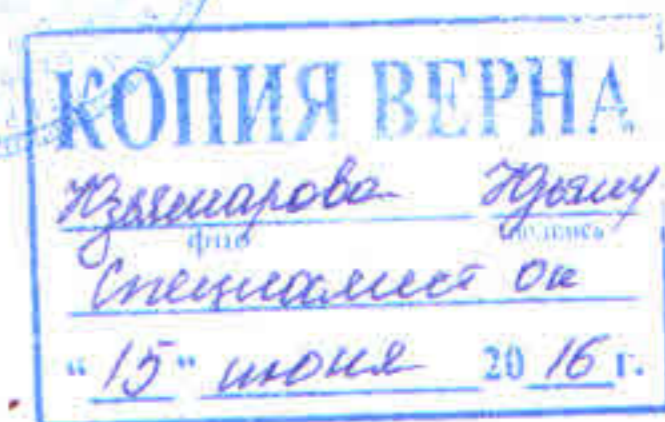 КОПИЯ ВЕРНА
фио подпись
Специалист ок
"15" июня 2016 г.